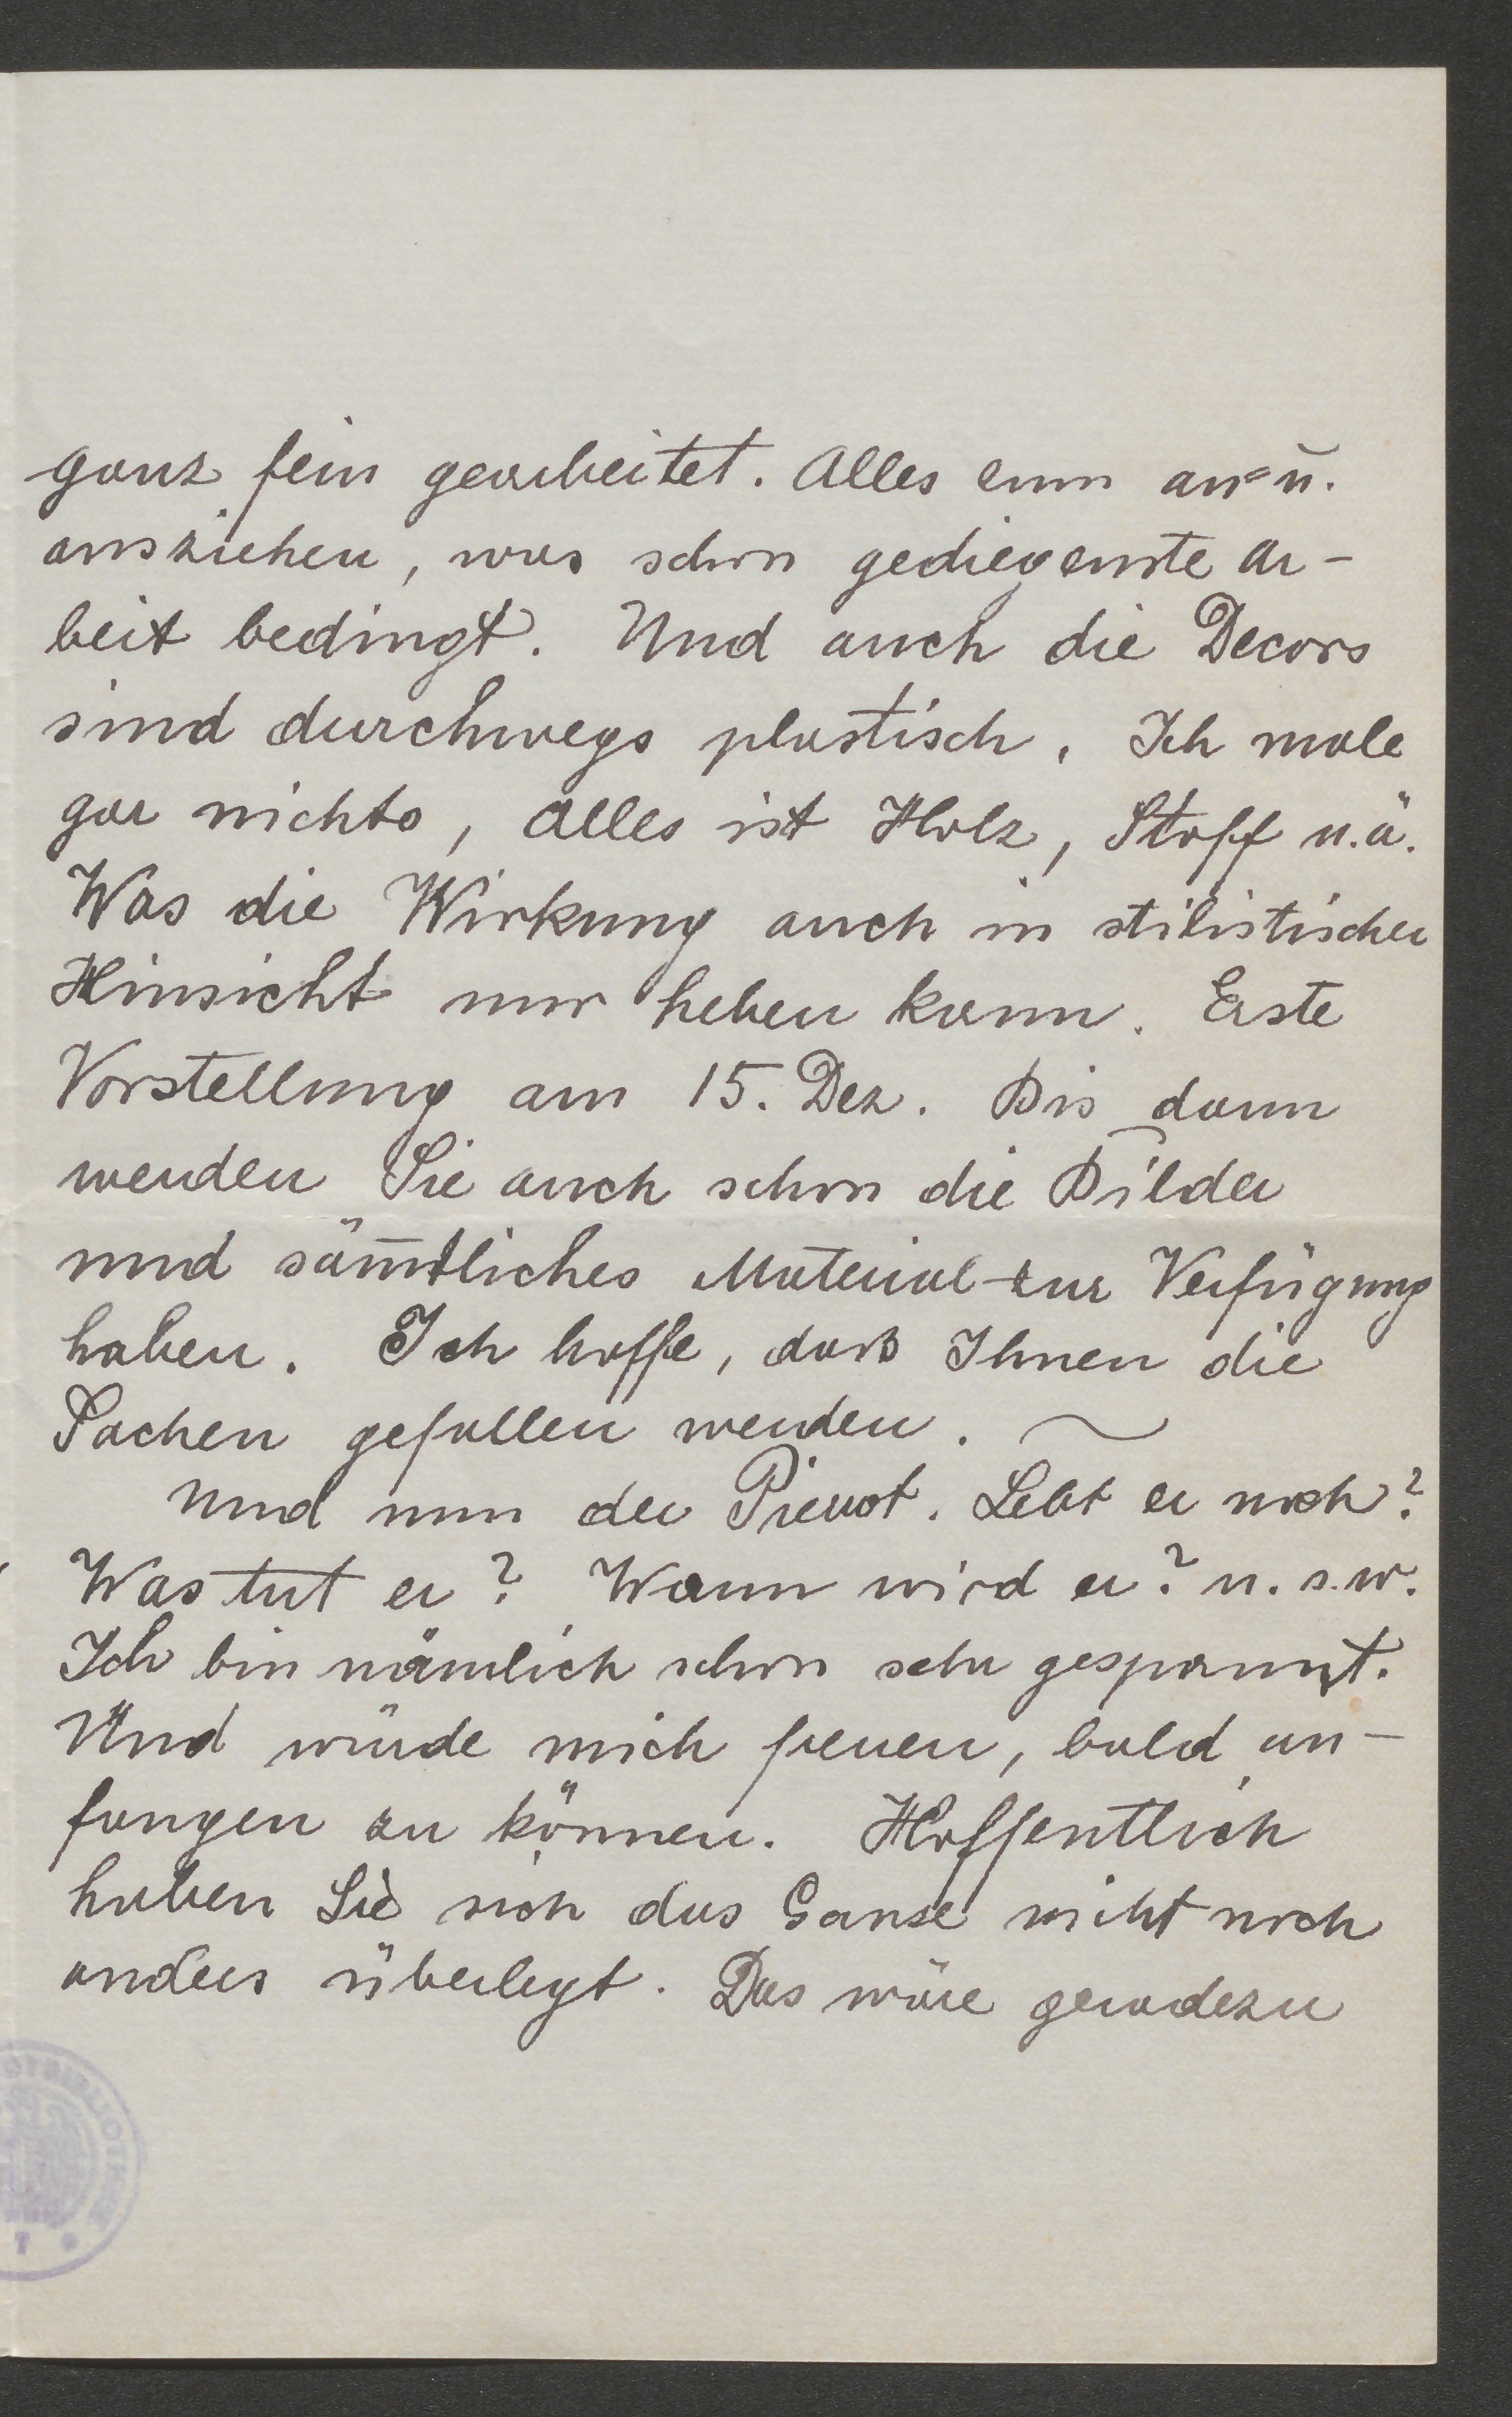 ganz fein gearbeitet. Alles zum an= u.
ausziehen, was schon gediegenste Ar-
beit bedingt. Und auch die Decors
sind durchwegs plastisch. Ich male
gar nichts, Alles ist Holz, Stoff u.ä.
Was die Wirkung auch in stilistischer
Hinsicht nur heben kann. Erste
Vorstellung am 15. Dez. Bis dann
werden Sie auch schon die Bilder
und säm̅tliches Material zur Verfügung
haben. Ich hoffe, dass Ihnen die
Sachen gefallen werden. ~
Und nun der Pierrot. Lebt er noch?
Was tut er? Wann wird er? u. s. w.
Ich bin nämlich schon sehr gespannt.
Und würde mich freuen, bald an-
fangen zu können. Hoffentlich
haben Sie sich das Ganze nicht noch
anders überlegt. Das wäre geradezu